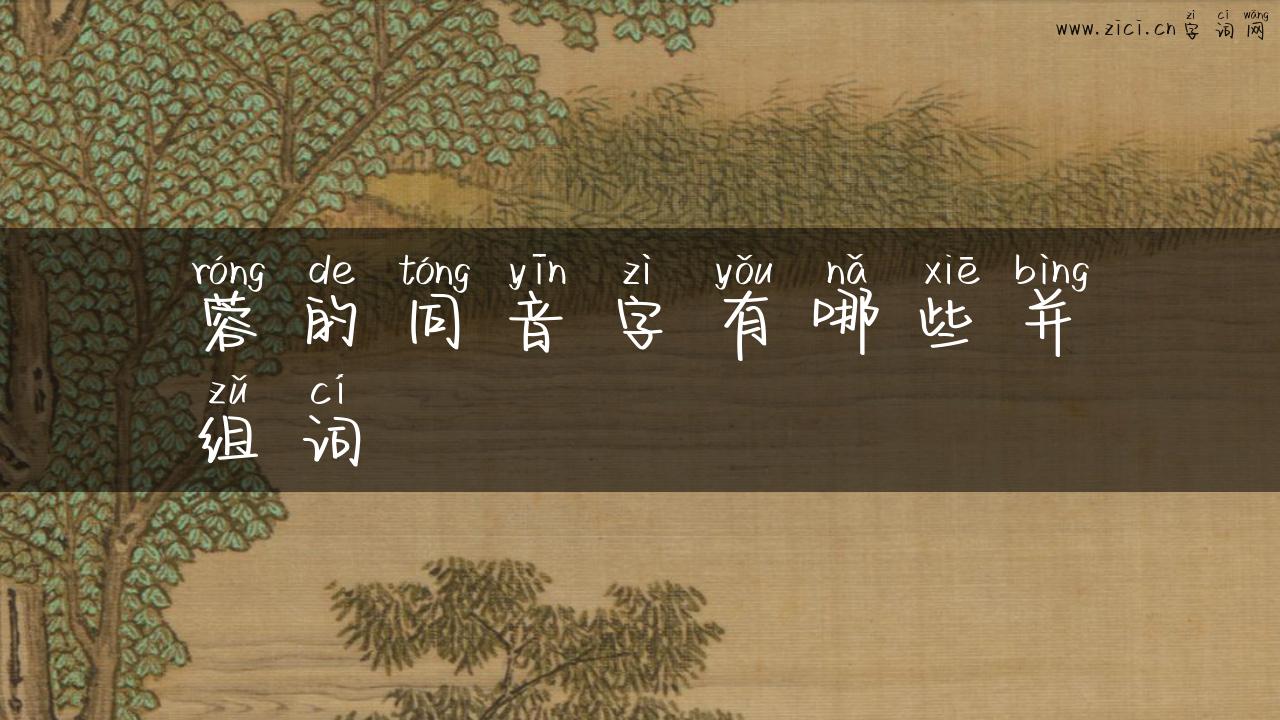 zì cí wǎng
www.zici.cn字词网
róng de tóng yīn zì yǒu nǎ xiē bìng
蓉的同音字有哪些并
zǔ cí
组词